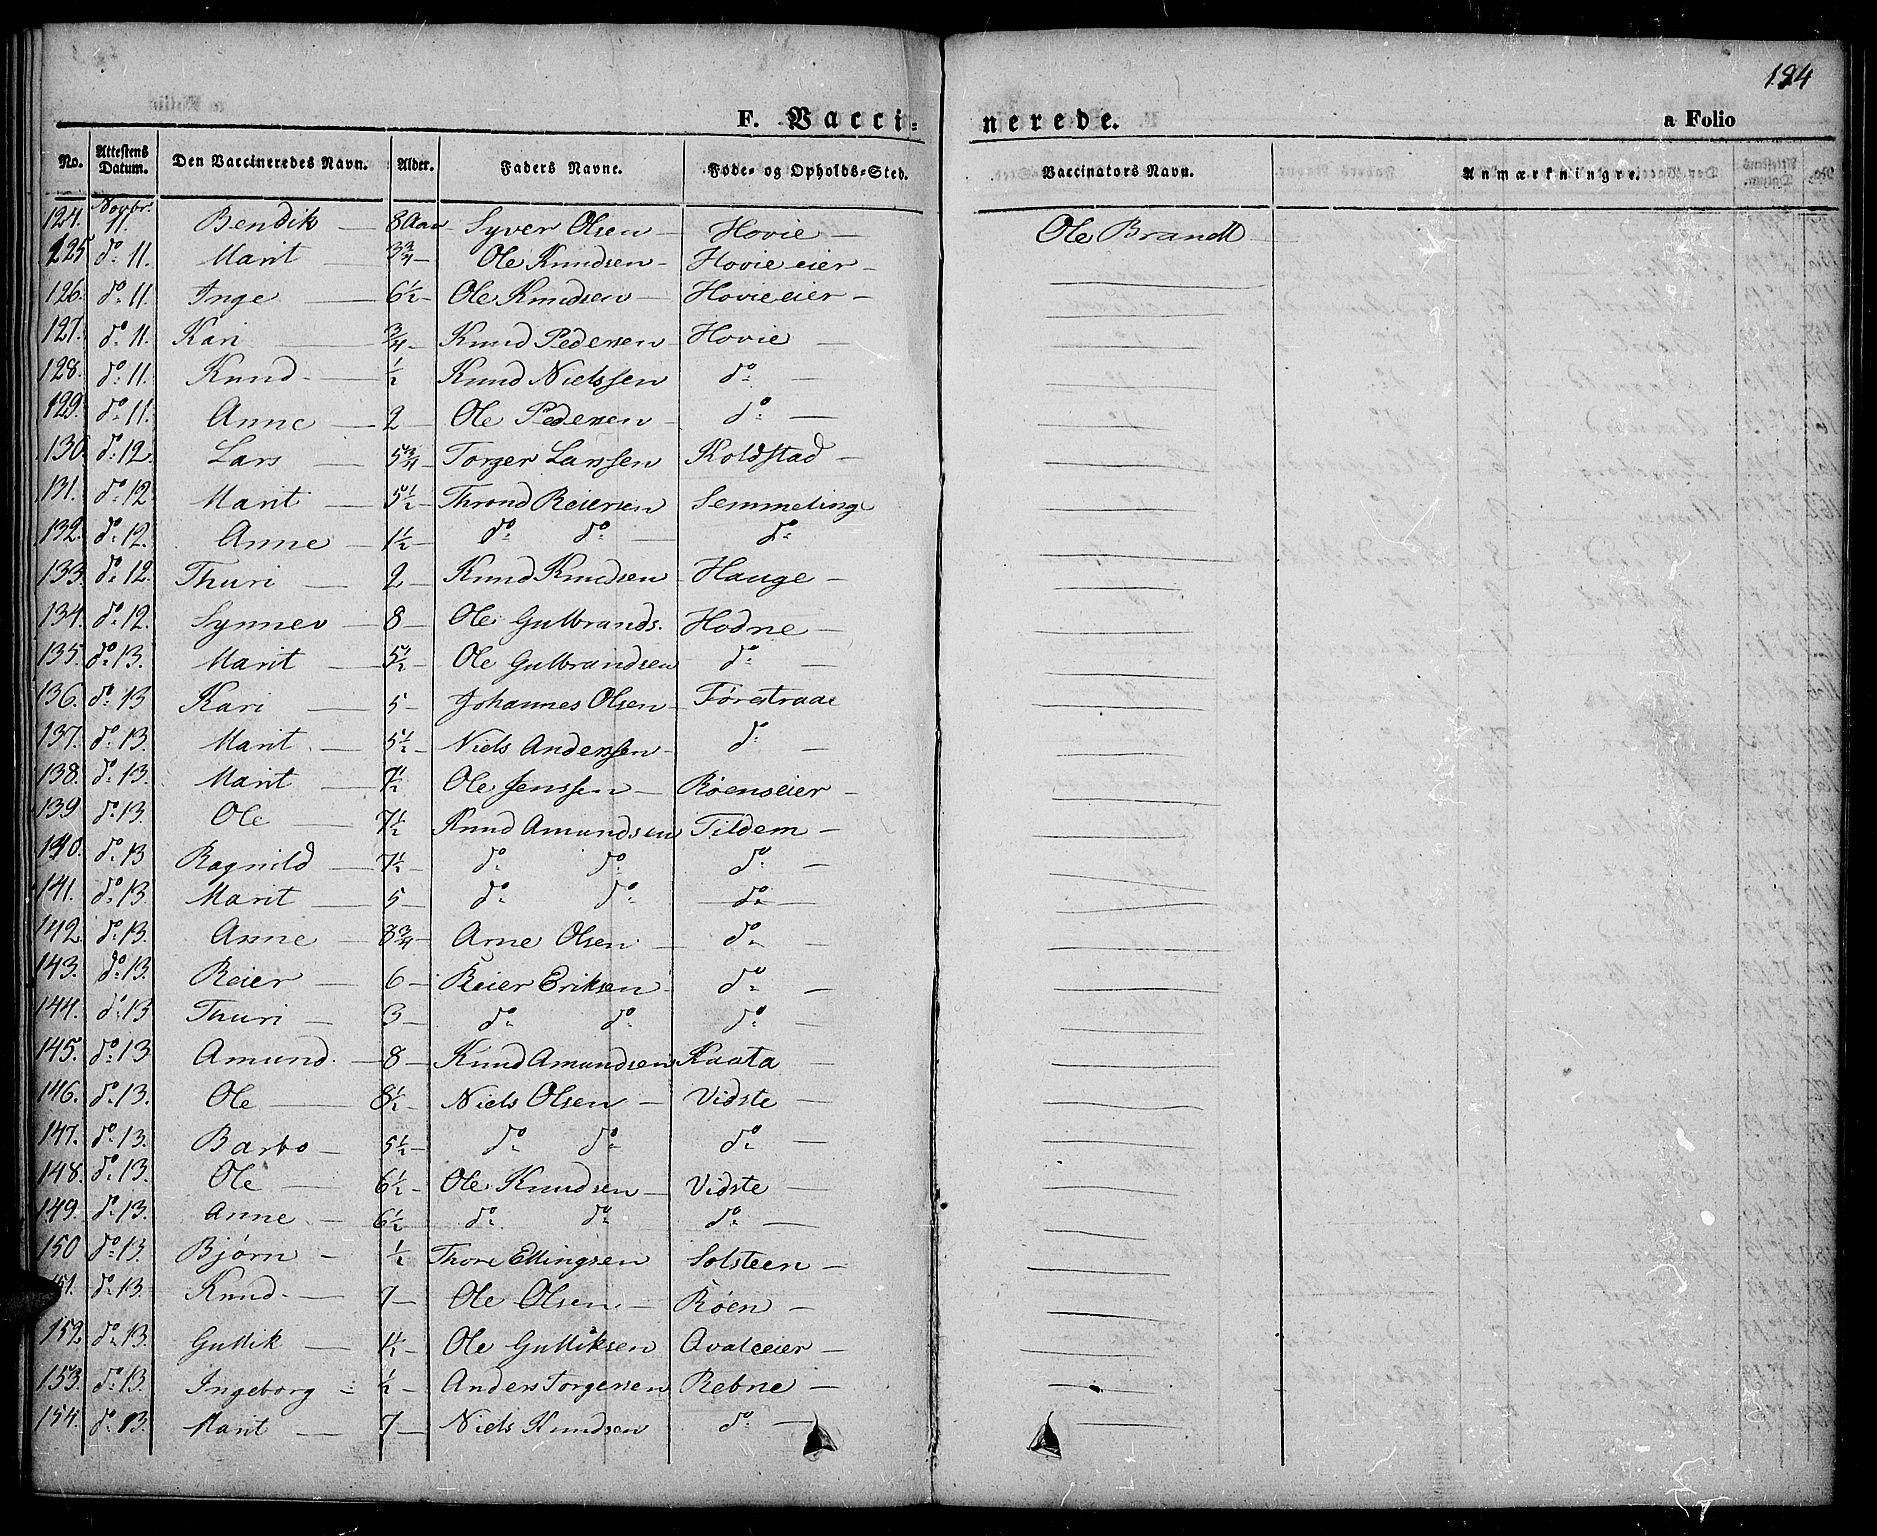 194
F. Vacci-
nerede.
a Folio
No. Attestens Datum. Den Vaccineredes Navn. Alder. Faders Navne. Føde- og Opholds-Sted. Vaccinators Navn. Anmærkninger.
124. Novbr. 11. Bendik — 8 Aar Syver Olsen — Hovie — Ole Brandt
125 do 11. Marit — 3 3/4 — Ole Knudsen — Hovie eier —
126. do 11. Inge — 6 1/2 — Ole Knudsen — Hovie eier —
127. do 11. Kari — 3/4 — Knud Pedersen Hovie —
128. do 11. Knud — 1/2 Knud Nielssen do —
129. do 11. Anne — 2 Ole Pedersen — do —
130. do 12. Lars — 5 3/4 — Torger Larssen Koldstad —
131. do 12 Marit — 5 1/2 — Thrond Reiersen Semmeling
132. do 12. Anne — 1 1/2 — do do — do
133. do 12. Thuri — 2 — Knud Knudsen — Hauge —
134. do 12. Synnev — 8 — Ole Gulbrands. Hodne —
135. do 13. Marit — 5 1/2 — Ole Gulbrandsen do —
136. do 13 Kari — 5 — Johannes Olsen — Førestraae
137. do 13. Marit — 5 1/2 — Niels Anderssen — do —
138. do 13. Marit — 7 1/2 — Ole Jenssen — Røenseier —
139 do 13. Ole — 7 1/2 Knud Amundsen Tildem —
140. do 13 Ragnild — 7 1/2 — do do do —
141. do 13. Marit — 5 — do do — do —
142. do 13. Anne — 8 3/4 — Arne Olsen — do —
143. do 13. Reier — 6 — Reier Eriksen — do —
144. do 13 Thuri — 3 — do do do —
145. do 13 Amund. — 8 — Knud Amundsen Kaata —
146. do 13. Ole — 8 1/2 — Niels Olsen — Vidste —
147. do 13. Barbo — 5 1/2 — do do do —
148. do 13. Ole — 6 1/2 — Ole Knudsen — Vidste —
149. do 13. Anne — 6 1/2 do do do —
150 do 13. Bjørn — 1/2 Thore Ellingsen Solsteen —
151. do 13. Knud — 7 — Ole Olsen — Røen —
152. do 13. Gullik — 1 1/2 — Ole Gulliksen Qvaleeier —
153. do 13. Ingeborg — 1/2 — Anders Torgersen Rebne —
154. do 13. Marit — 7 — Niels Knudsen do —